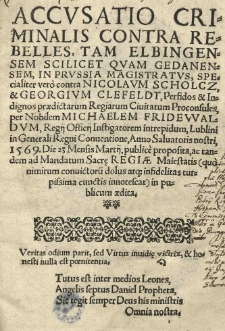 ACCVSATIO CRI-
MINALIS CONTRA RE-
BELLES, TAM ELBINGEN-
SEM SCILICET QVAM GEDANEN-
SEM, IN PRVSSIA MAGISTRATVS, SPE-
cialiter verò contra NICOLAVM SCHOLCZ,
& GEORGIVM CLEFELDT, Perfidos & In-
dignos prædictarum Regiarum Ciuitatum Proconsules,
per Nobilem MICHAELEM FRIDEVVAL-
DVM, Regij Officij Instigatorem intrepidum, Lublini
in Generali Regni Conuentione, Anno Saluatoris nostri,
1569. Die 23 Mensis Martij, publicè proposita, ac tan-
dem ad Mandatum Sacræ REGIÆ Maiestatis (quò
nimirum conuictorũ dolus atqꝫ infidelitas tur-
pissima cunctis innotescat) in pu-
blicum ædita.
Veritas odium parit, sed Virtus inuidię victrix, & ho-
nesti nulla est pœnitentia.
Tutus est inter medios Leones,
Angelis septus Daniel Propheta,
Sic tegit semper Deus his ministris
Omnia nostra.